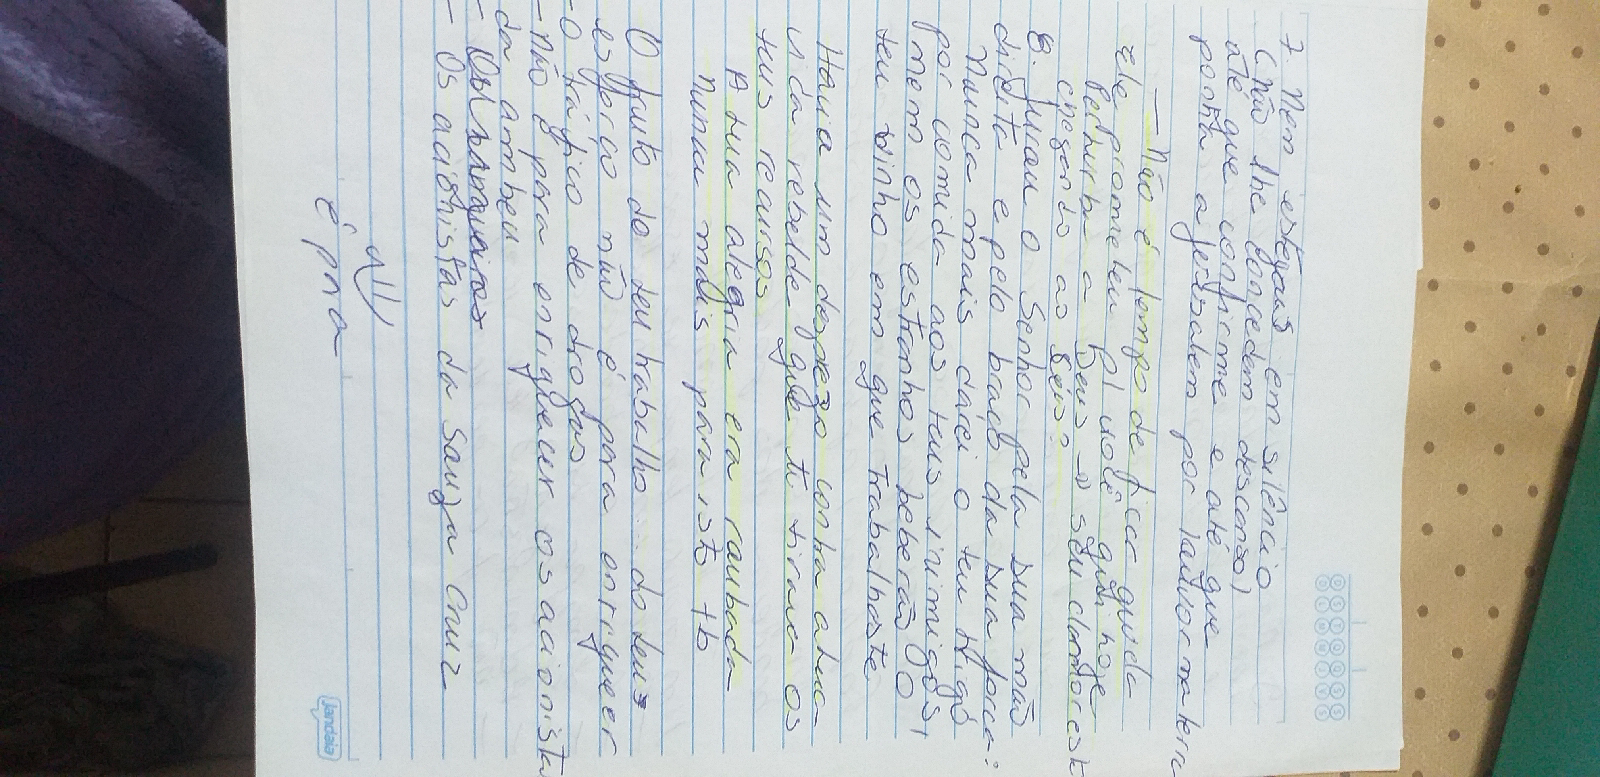 7. Nem estejais em silêncio
(Não lhe concedam descanso)
até que confirme e até que
ponha a Jerusalem por louvor na terra
— Não é tempo de ficar quieta
Ele prometeu p/ você que hoje
Perturba a Deus → seu clamor está
chegando ao Céu?
8. Jurou o Senhor pela sua mão
direita e pelo braço da sua força:
Nunca mais darei o teu trigo
por comida aos teus inimigos,
nem os estranhos beberão o
teu vinho em que trabalhaste
Havia um desprezo contra a tua
vida rebelde que te tirava os
teus
A tua alegria era roubada
nunca mais para isto tb
O fruto do teu trabalho... do teu
esforço não é para enriquecer
- O tráfico de drogas
- Não para enriquecer os acionista
da ambev
- Os acionistas da Souza Cruz
é pra
jandaia
D S T Q Q S S
D L M M J V S